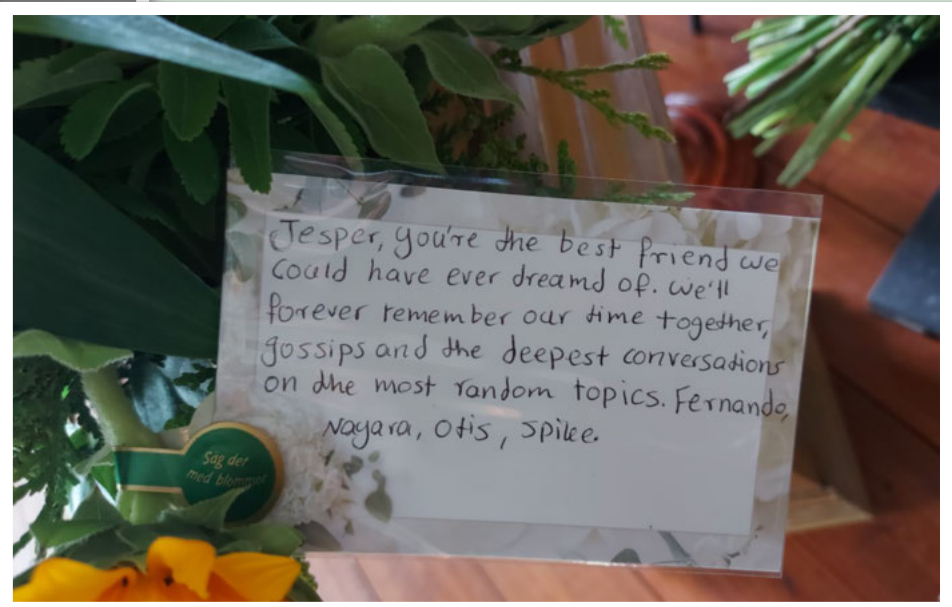 Jesper, you're the best friend we
could have ever dreamd of. we'll
forever remember our time together,
gossips and the deepest conversations
on the most random topics. Fernando,
Nayara, Otis, Spike.
Säg det
med blommor